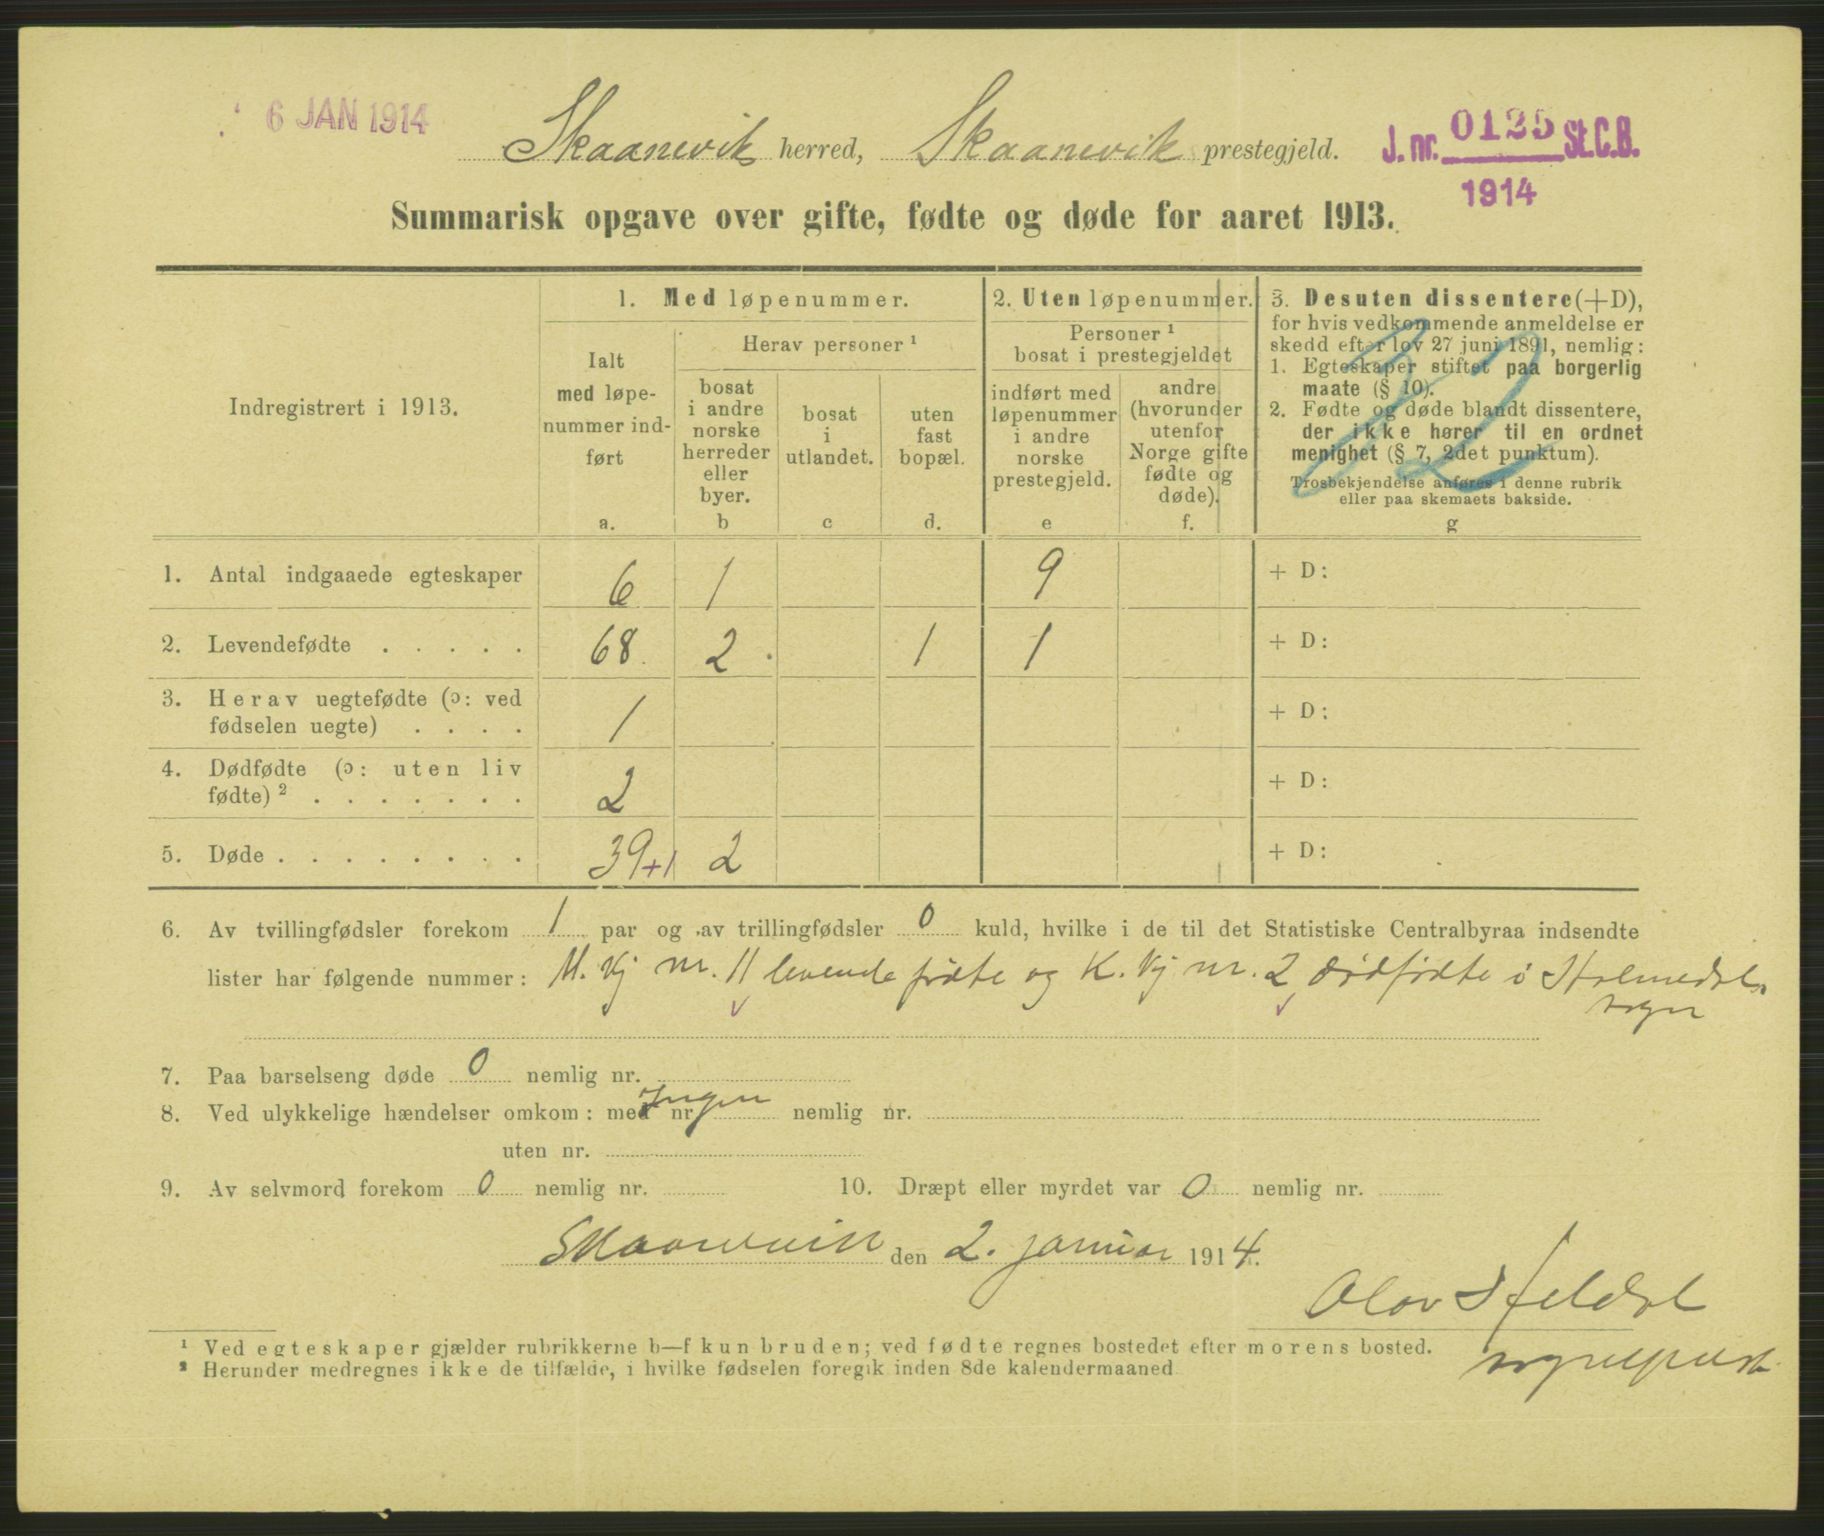 6 JAN 1914
Skaanevik herred, Skaanevik prestegjeld.
J. nr. 0125 St.C.B.
1914
Summarisk opgave over gifte, fødte og døde for aaret 1913.
Indregistrert i 1913.
1. Med løpenummer.
Ialt
med løpe-
nummer ind-
ført
a.
Herav personer ¹
bosat
i andre
norske
herreder
eller
byer.
b
bosat
i
utlandet.
c
uten
fast
bopæl.
d.
2. Uten løpenummer.
Personer ¹
bosat i prestegjeldet
indført med
løpenummer
i andre
norske
prestegjeld.
e
andre
(hvorunder
utenfor
Norge gifte
fødte og
døde).
f.
3. Desuten dissentere (+D),
for hvis vedkommende anmeldelse er
skedd efter lov 27 juni 1891, nemlig:
1. Egteskaper stiftet paa borgerlig
maate (§ 10).
2. Fødte og døde blandt dissentere,
der ikke hører til en ordnet
menighet (§ 7, 2det punktum).
Trosbekjendelse anføres i denne rubrik
eller paa skemaets bakside.
g
22
1. Antal indgaaede egteskaper 6 1 9 + D:
2. Levendefødte . . . . . 68. 2. 1 1 + D:
3. Herav uegtefødte (ɔ: ved
fødselen uegte) . . . . 1 + D:
4. Dødfødte (ɔ: uten liv
fødte) ² . . . . . . . 2 + D:
5. Døde . . . . . . . . 39+1 2 + D:
6. Av tvillingfødsler forekom 1 par og av trillingfødsler 0 kuld, hvilke i de til det Statistiske Centralbyraa indsendte
lister har følgende nummer: M. Kj nr. 11 levende fødte og K. Kj nr. 2 dødfødte i Holmedal
sogn
7. Paa barselseng døde 0 nemlig nr.
8. Ved ulykkelige hændelser omkom: med nr. Ingen nemlig nr.
uten nr.
9. Av selvmord forekom 0 nemlig nr. 10. Dræpt eller myrdet var 0 nemlig nr.
Skaanevik den 2. januar 1914.
Olav
sogneprest
¹ Ved egteskaper gjælder rubrikkerne b—f kun bruden; ved fødte regnes bostedet efter morens bosted.
² Herunder medregnes ikke de tilfælde, i hvilke fødselen foregik inden 8de kalendermaaned